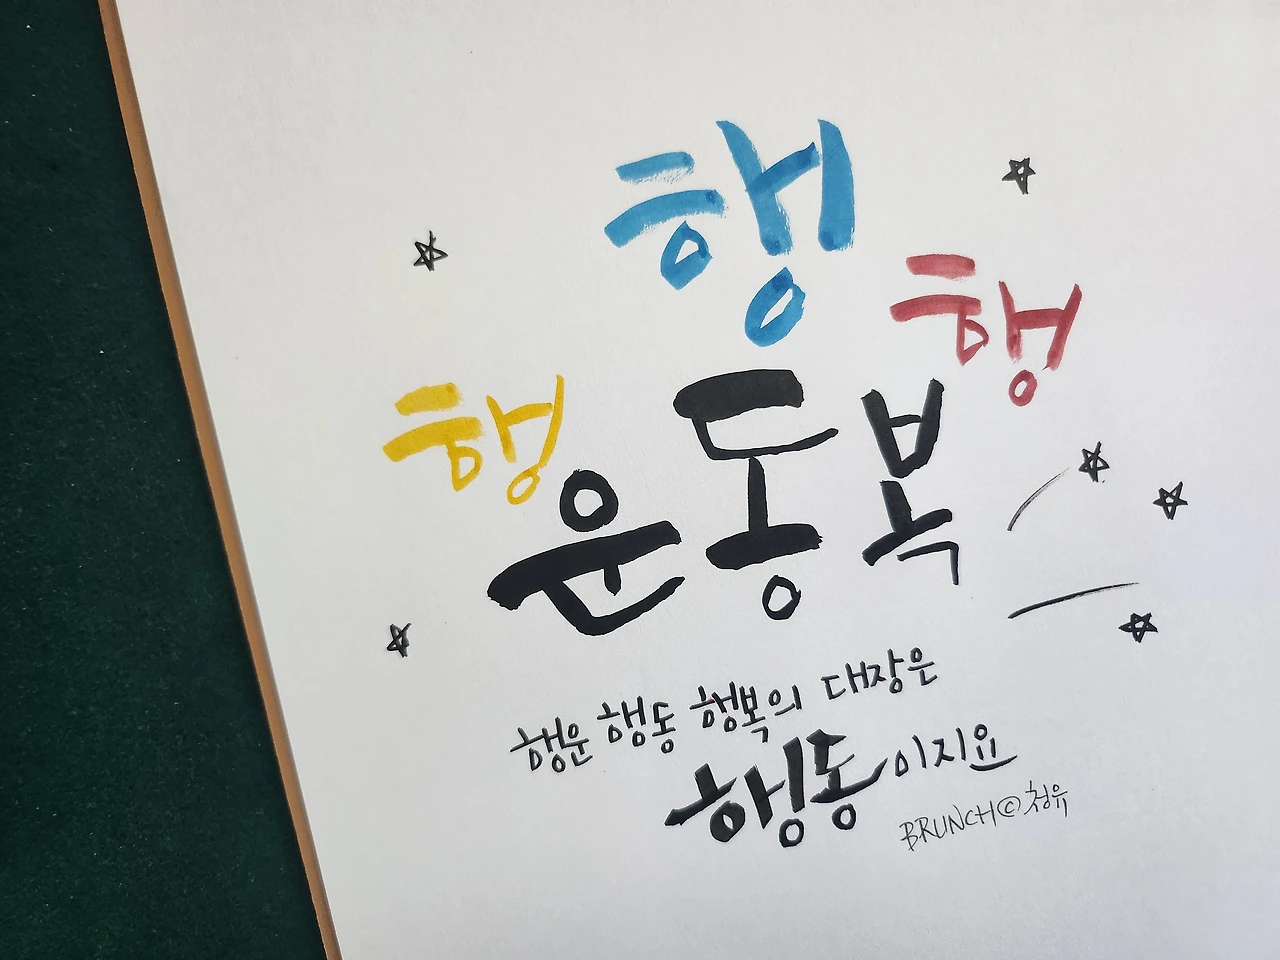 행 행 행
운 동 복
행운 행동 행복의 대장은
행동이지요
BRUNCH©청유